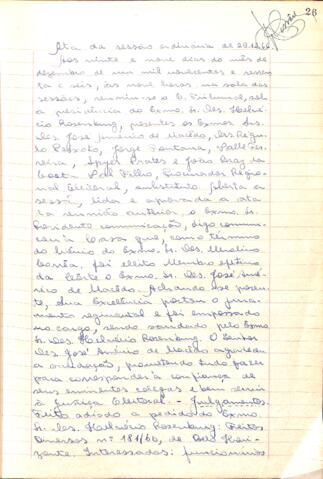 26
Ata da sessão ordinária de 29.12.66
Aos vinte e nove dias do mês de
dezembro de um mil novecentos e sessen
ta e seis, às nove horas na sala das
sessões, reuniu-se o E. Tribunal, sob
a presidência do Exmo. Sr. Des. Helvécio
Rosenburg, presentes os Exmos Srs.
Des. José Américo de Macêdo, drs. Régu
lo Peixoto, Jorge Fontana, Valle Fer
reira, Prates e João Braz da
Costa Val Filho, Procurador Regio
nal Eleitoral, substituto. Aberta a
sessão, lida e aprovada a ata
da reunião anterior, o Exmo. Sr.
Presidente comunicação, digo, comu
nicou à Casa que, com o término
do biênio do Exmo. Sr. Des. Merolino
Corrêa, foi eleito Membro efetivo
da Côrte o Exmo. Sr. Des. José Amé
rico de Macêdo. Achando-se presen
te, Sua Excelência prestou o jura
mento regimental e foi empossado
no cargo, sendo saudado pelo Exmo
Sr. Des. Helvécio Rosenburg. O Senhor
Des. José Américo de Macêdo agradeceu
a saudação, prometendo tudo fazer
para corresponder à confiança de
seus eminentes colegas e bem servir
à Justiça Eleitoral. - Julgamentos.
Feito adiado a pedido do Exmo.
Sr. Des. Helvécio Rosenburg: Feitos
Diversos nº 181/66, de Belo Hori-
zonte. Interessados: funcionários